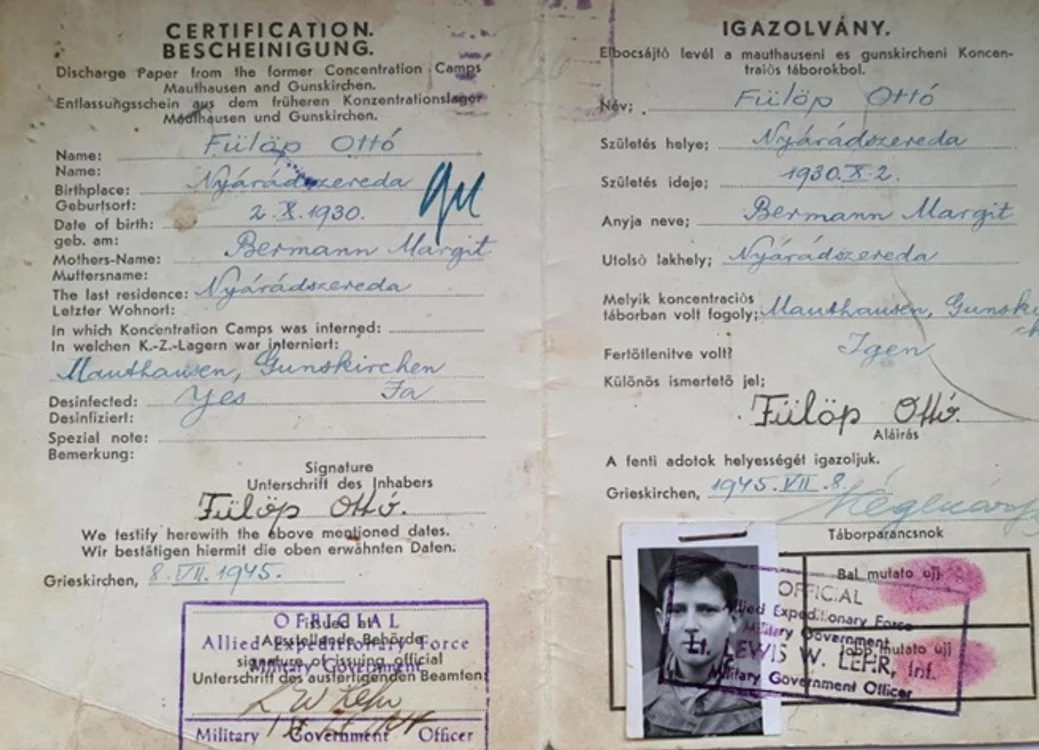 CERTIFICATION.
BESCHEINIGUNG.
Discharge Paper from the former Concentration Camps
Mauthausen and Gunskirchen.
Entlassungsschein aus dem früheren Konzentrationslager
Mauthausen und Gunskirchen.
Name: Fülöp Ottó
Name:
Birthplace: Nyárádszereda
Geburtsort:
Date of birth: 2.X.1930.
geb. am:
Mothers-Name: Bermann Margit
Muttersname:
The last residence: Nyárádszereda
Letzter Wohnort:
In which Koncentration Camps was interned:
In welchen K.-Z.-Lagern war interniert:
Mauthausen, Gunskirchen
Desinfected: Yes Ja
Desinfiziert:
Spezial note:
Bemerkung:
Signature
Unterschrift des Inhabers
Fülöp Ottó.
We testify herewith the above mentioned dates.
Wir bestätigen hiermit die oben erwähnten Daten.
Grieskirchen, 8.VII.1945.
OFFICIAL
issued by
Allied Expeditionary Force
Ausstellende Behörde
Military Government
signature of issuing official
Unterschrift des ausfertigenden Beamten
L W Lehr
Military Government Officer
IGAZOLVÁNY.
Elbocsájtò levél a mauthauseni es gunskircheni Koncen-
traiòs táborokbol.
Név; Fülöp Ottó
Születés helye; Nyárádszereda
Születés ideje; 1930.X.2.
Anyja neve; Bermann Margit
Utolsò lakhely; Nyárádszereda
Melyik koncentraciòs
táborban volt fogoly; Mauthausen, Gunski
Fertötlenitve volt? Igen
Különös ismertetö jel;
Fülöp Ottó.
Aláirás
A fenti adotok helyességét igazoljuk.
Grieskirchen, 1945.VII.8.
Táborparancsnok
Bal mutato ujj
OFFICIAL
Allied Expeditionary Force
Military Government
Jobb mutato ujj
Lt. LEWIS W. LEHR, Inf.
Military Government Officer